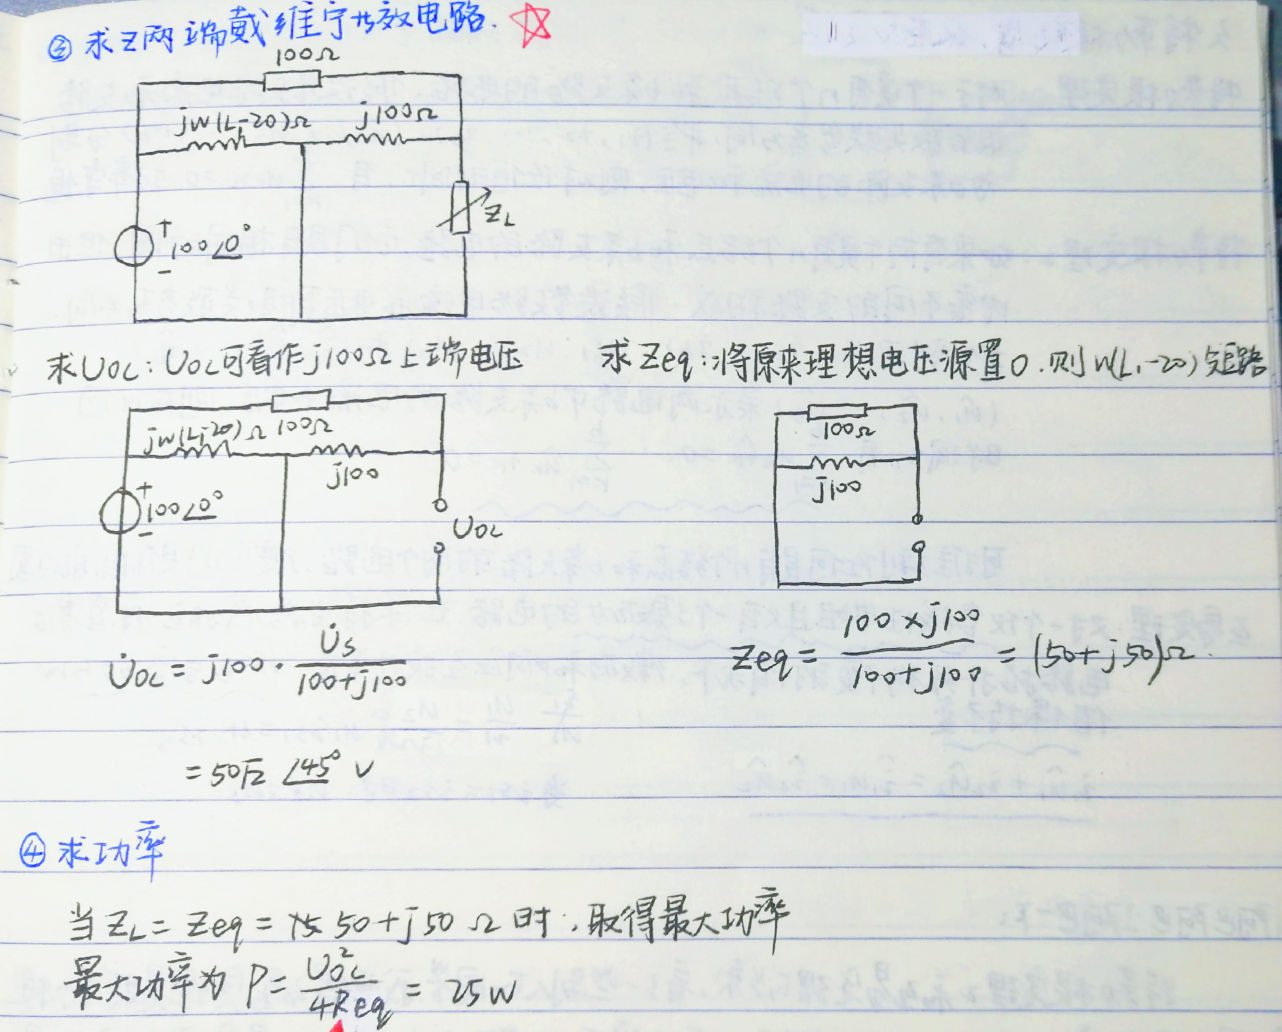 ③ 求Z两端戴维宁等效电路.
100Ω
jW(L₁-20)Ω j100Ω
+
100∠0°
-
ZL
求UOL: UOL可看作j100Ω上端电压
求Zeq: 将原来理想电压源置0. 则W(L₁-20)短路
jW(L₁-20)Ω 100Ω
j100
+
100∠0°
-
UOL
100Ω
j100
U̇OL = j100 · U̇s / (100+j100)
= 50√2 ∠45° V
Zeq = (100×j100) / (100+j100) = (50+j50)Ω
④ 求功率
当ZL = Zeq = 50+j50 Ω 时, 取得最大功率
最大功率为 P = UOL² / 4Req = 25W